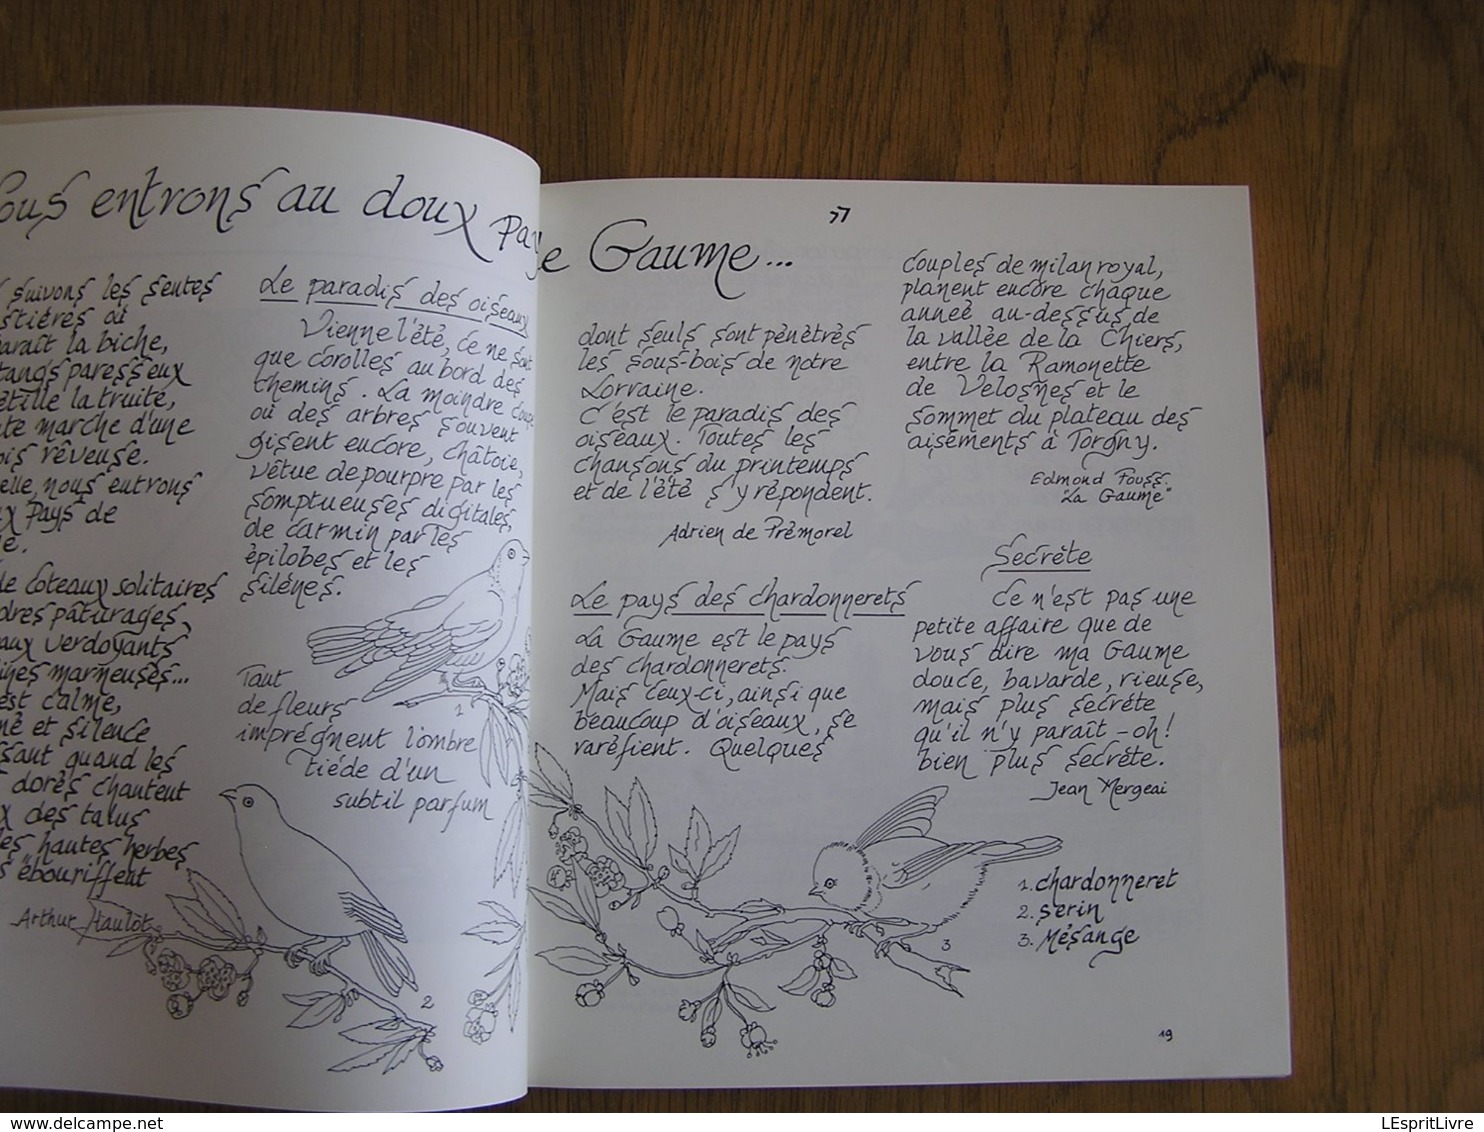 ous entrons au doux pay
e Gaume... "
suivons les sentes
stières où
araît la biche,
tangs paresseux
étille la truite,
te marche d'une
ois rêveuse.
elle, nous entrons
x Pays de
e.
de coteaux solitaires
dres pâturages,
aux verdoyants
ines marneuses...
est calme,
né et silence
ssant quand les
dorés chantent
x des talus
les hautes herbes
s "ébouriffent
Arthur Haulot
Le paradis des oiseaux
Vienne l'été, ce ne sont
que corolles au bord des
chemins. La moindre coupe
où des arbres souvent
gisent encore, châtoie,
vêtue de pourpre par les
somptueuses digitales,
de carmin par les
épilobes et les
silènes.
Tant
de fleurs
imprégnent l'ombre
tiéde d'un
subtil parfum
1
2
dont seuls sont pénétrés
les sous-bois de notre
Lorraine.
C'est le paradis des
oiseaux. Toutes les
chansons du printemps
et de l'été s'y répondent.
Adrien de Prémorel
Le pays des chardonnerets
La Gaume est le pays
des chardonnerets.
Mais ceux-ci, ainsi que
beaucoup d'oiseaux, se
raréfient. Quelques
couples de milan royal,
planent encore chaque
année au-dessus de
la vallée de la Chiers,
entre la Ramonette
de Velosnes et le
sommet du plateau des
aisements à Torgny.
Edmond Fouss.
"La Gaume"
Secréte
Ce n'est pas une
petite affaire que de
vous dire ma Gaume
douce, bavarde, rieuse,
mais plus secréte
qu'il n'y paraît - oh!
bien plus secréte.
Jean Mergeai
3
1. chardonneret
2. serin
3. Mésange
19
LEspritLivre